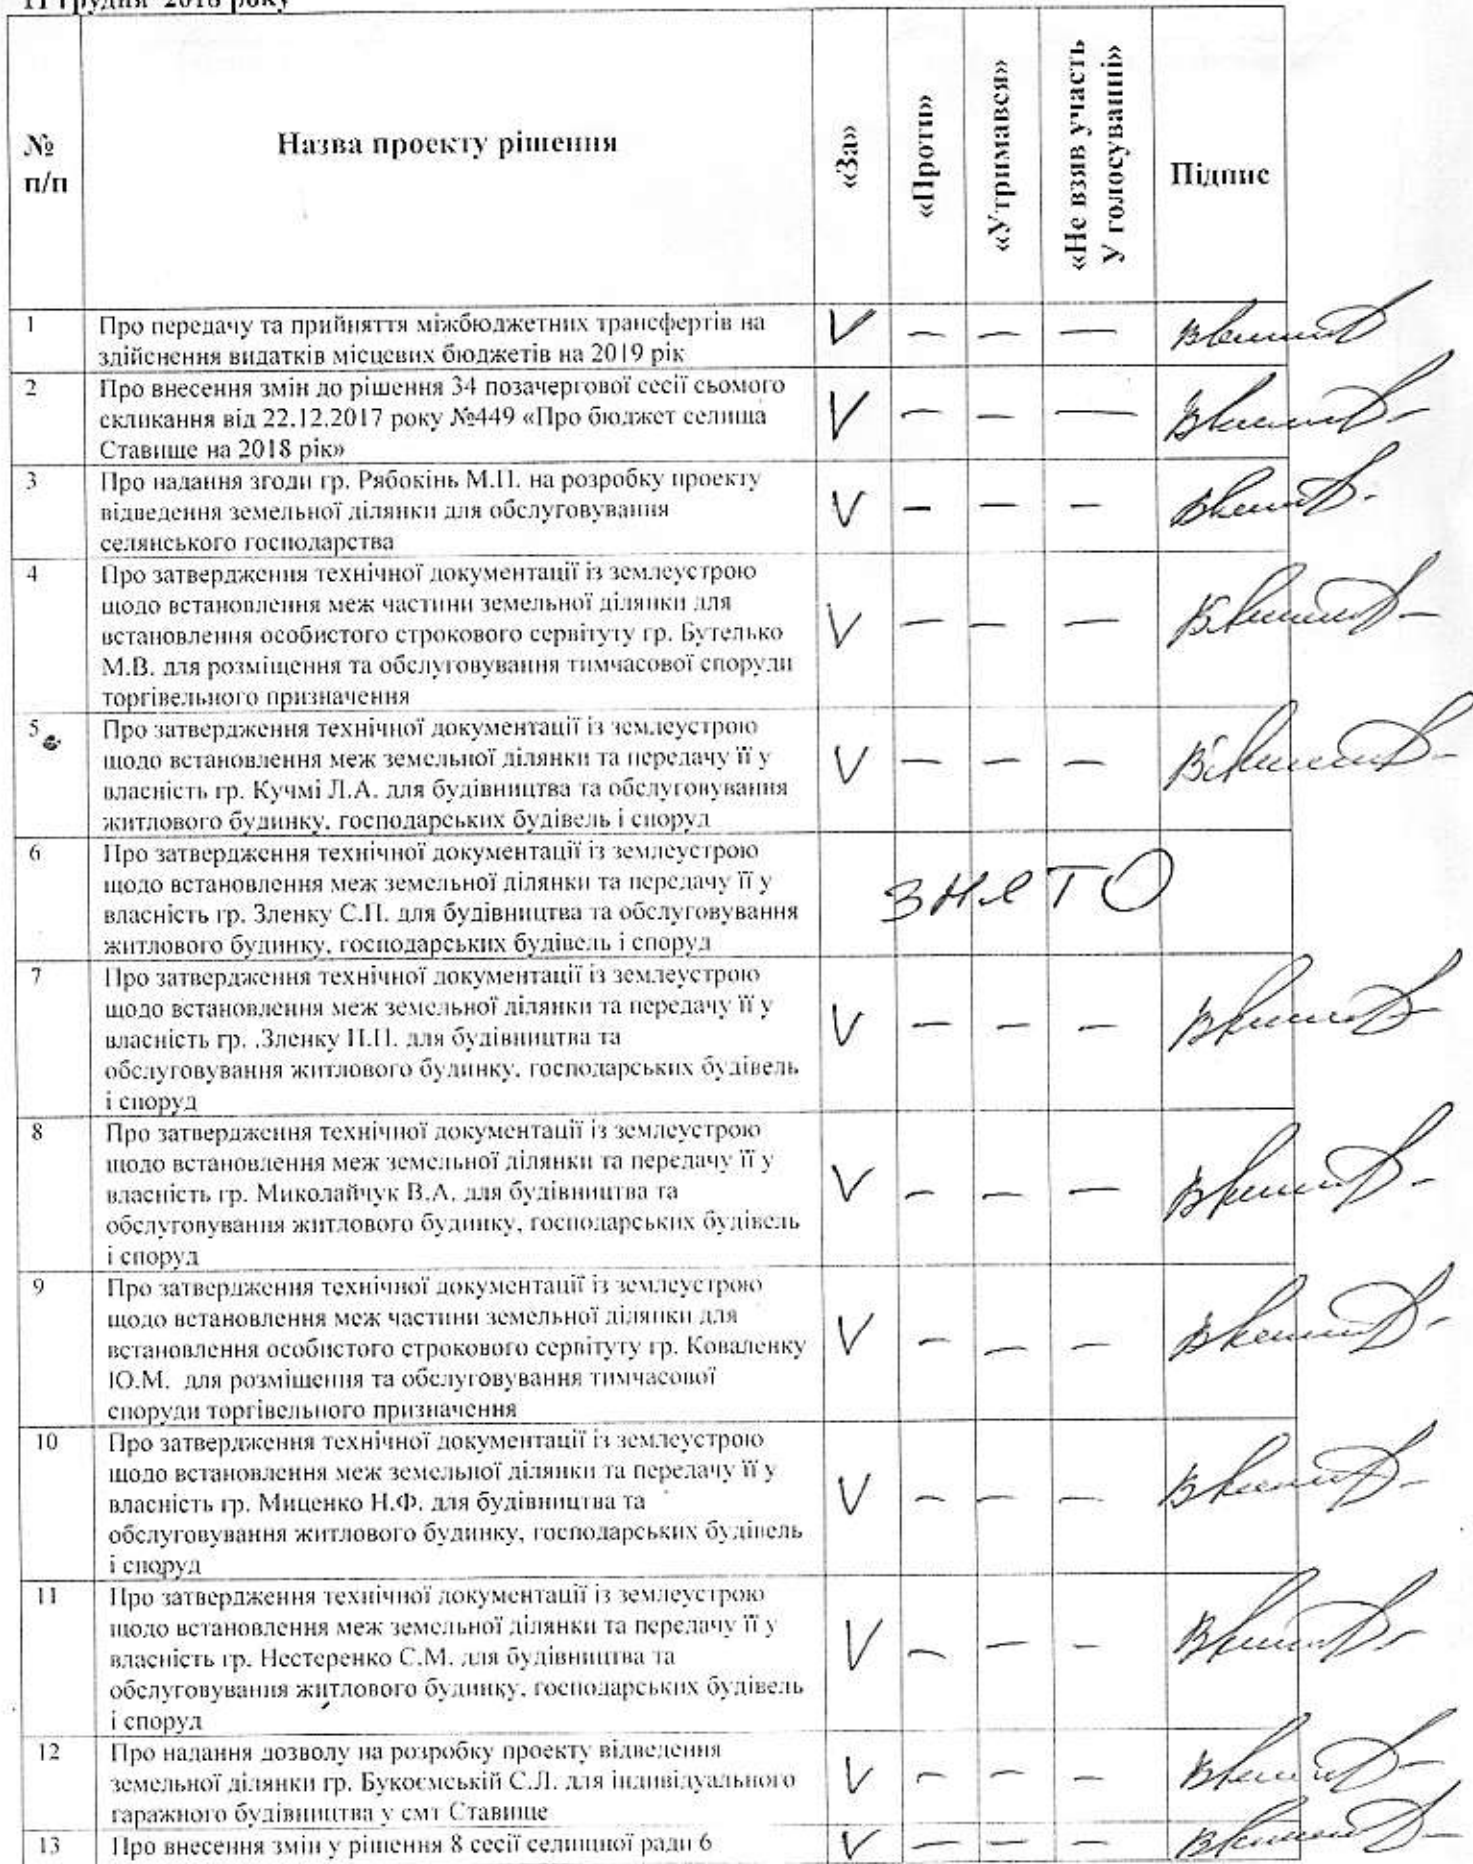 11 грудня 2018 року
№ п/п
Назва проекту рішення
«За»
«Проти»
«Утримався»
«Не взяв участь
У голосуванні»
Підпис
1
Про передачу та прийняття міжбюджетних трансфертів на
здійснення видатків місцевих бюджетів на 2019 рік
V – – –
2
Про внесення змін до рішення 34 позачергової сесії сьомого
скликання від 22.12.2017 року №449 «Про бюджет селища
Ставище на 2018 рік»
V – – –
3
Про надання згоди гр. Рябокінь М.П. на розробку проекту
відведення земельної ділянки для обслуговування
селянського господарства
V – – –
4
Про затвердження технічної документації із землеустрою
щодо встановлення меж частини земельної ділянки для
встановлення особистого строкового сервітуту гр. Бутелько
М.В. для розміщення та обслуговування тимчасової споруди
торгівельного призначення
V – – –
5
Про затвердження технічної документації із землеустрою
щодо встановлення меж земельної ділянки та передачу її у
власність гр. Кучмі Л.А. для будівництва та обслуговування
житлового будинку, господарських будівель і споруд
V – – –
6
Про затвердження технічної документації із землеустрою
щодо встановлення меж земельної ділянки та передачу її у
власність гр. Зленку С.П. для будівництва та обслуговування
житлового будинку, господарських будівель і споруд
ЗНЯТО
7
Про затвердження технічної документації із землеустрою
щодо встановлення меж земельної ділянки та передачу її у
власність гр. .Зленку П.П. для будівництва та
обслуговування житлового будинку, господарських будівель
і споруд
V – – –
8
Про затвердження технічної документації із землеустрою
щодо встановлення меж земельної ділянки та передачу її у
власність гр. Миколайчук В.А. для будівництва та
обслуговування житлового будинку, господарських будівель
і споруд
V – – –
9
Про затвердження технічної документації із землеустрою
щодо встановлення меж частини земельної ділянки для
встановлення особистого строкового сервітуту гр. Коваленку
Ю.М. для розміщення та обслуговування тимчасової
споруди торгівельного призначення
V – – –
10
Про затвердження технічної документації із землеустрою
щодо встановлення меж земельної ділянки та передачу її у
власність гр. Миценко Н.Ф. для будівництва та
обслуговування житлового будинку, господарських будівель
і споруд
V – – –
11
Про затвердження технічної документації із землеустрою
щодо встановлення меж земельної ділянки та передачу її у
власність гр. Нестеренко С.М. для будівництва та
обслуговування житлового будинку, господарських будівель
і споруд
V – – –
12
Про надання дозволу на розробку проекту відведення
земельної ділянки гр. Букоємській С.Л. для індивідуального
гаражного будівництва у смт Ставище
V – – –
13
Про внесення змін у рішення 8 сесії селищної ради 6
V – – –